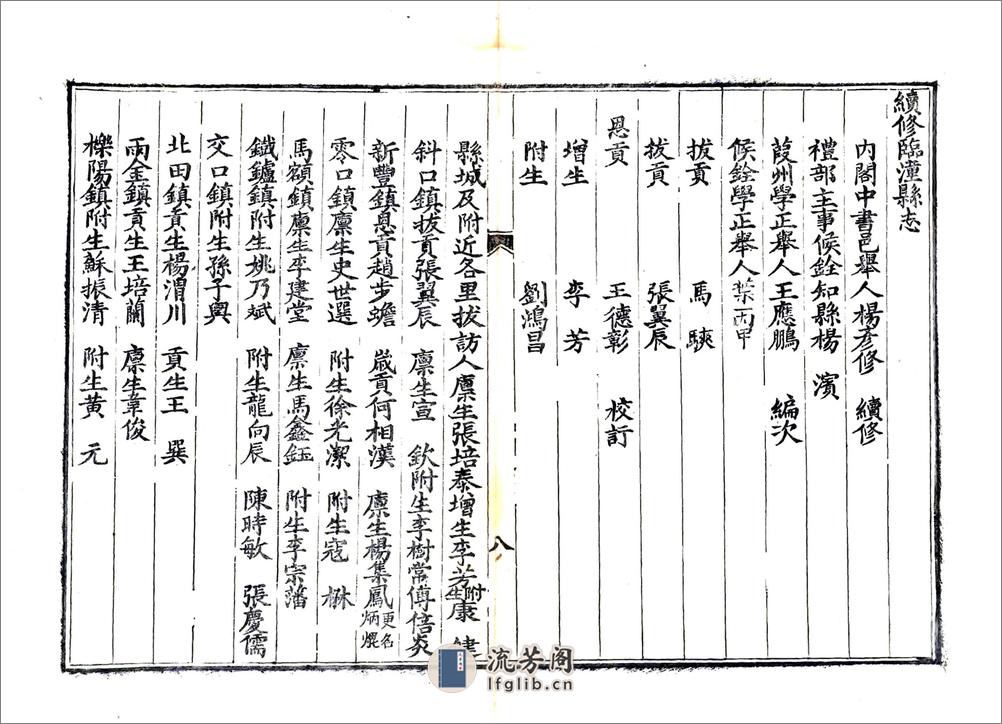 續修臨潼縣志
內閣中書邑舉人楊彥修 續修
禮部主事候銓知縣楊 濱
葭州學正舉人王應鵬 編次
候銓學正舉人 丙甲
拔貢 馬騻
拔貢 張翼辰
恩貢 王德彰 校訂
增生 李芳
附生 劉鴻昌
八
縣城及附近各里拔訪人廩生張培泰增生李芳附生康
斜口鎮拔貢張翼辰 廩生宣 欽附生李樹常傅倍炎
新豐鎮恩貢趙步蟾 嵗貢何相漢 廩生楊集鳳更名炳
零口鎮廩生史世選 附生徐光潔 附生寇 楙
馬額鎮廩生李建堂 廩生馬鑫鈺 附生李宗藩
鐵鑪鎮附生姚乃斌 附生龍向辰 陳時敏 張慶儒
交口鎮附生孫子輿
北田鎮貢生楊渭川 貢生王 巽
雨金鎮貢生王培蘭 廩生韋俊
櫟陽鎮附生蘇振清 附生黃 元
流芳阁
lfglib.cn